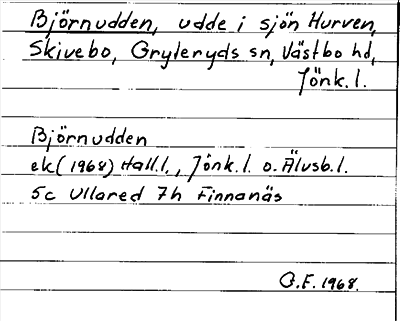 Björnudden, udde i sjön Hurven,
Skivebo, Gryteryds sn, Västbo hd,
Jönk.l.
Björnudden
ek(1968) Hall.l., Jönk.l. o. Älvsb.l.
5c Ullared 7h Finnanäs
G.F. 1968.